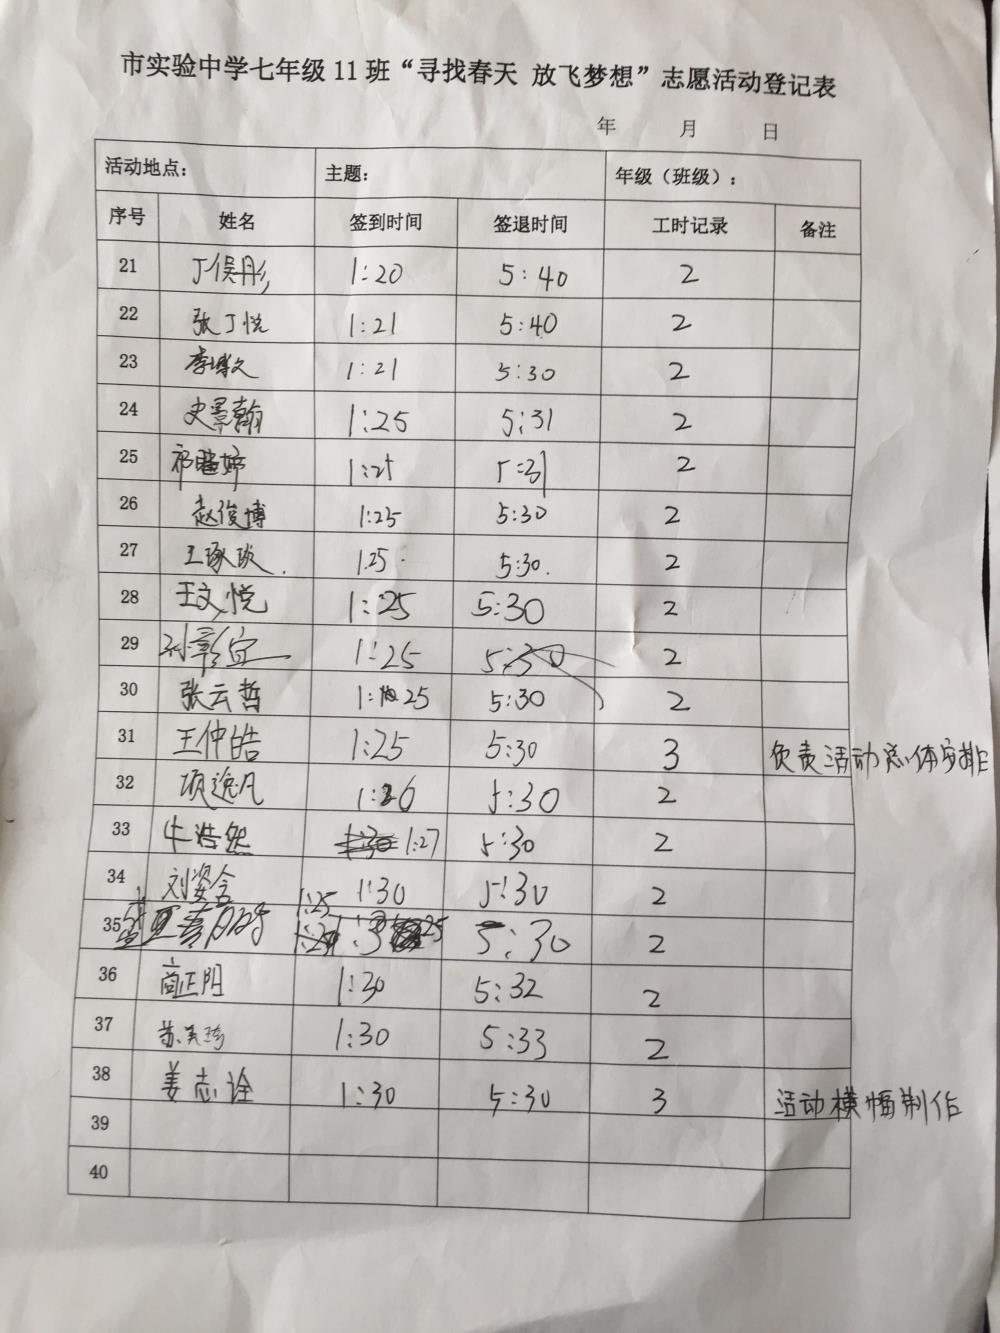 市实验中学七年级11班“寻找春天 放飞梦想”志愿活动登记表
年 月 日
活动地点: 主题: 年级（班级）:
序号 姓名 签到时间 签退时间 工时记录 备注
21 丁俣彤 1:20 5:40 2
22 张丁悦 1:21 5:40 2
23 1:21 5:30 2
24 史景翰 1:25 5:31 2
25 祁曉婷 1:25 5:31 2
26 赵俊博 1:25 5:30 2
27 王琢琰. 1:25 5:30. 2
28 王文悦 1:25 5:30 2
29 刘彰宜 1:25 5:30 2
30 张云哲 1:25 5:30 2
31 王仲皓 1:25 5:30 3 负责活动总体安排
32 项逸凡 1:26 5:30 2
33 牛浩然 1:30 1:27 5:30 2
34 刘姿含 1:30 5:30 2
35 1:25 5:30 2
36 商正阳 1:30 5:32 2
37 1:30 5:33 2
38 姜志诠 1:30 5:30 3 活动横幅制作
39
40